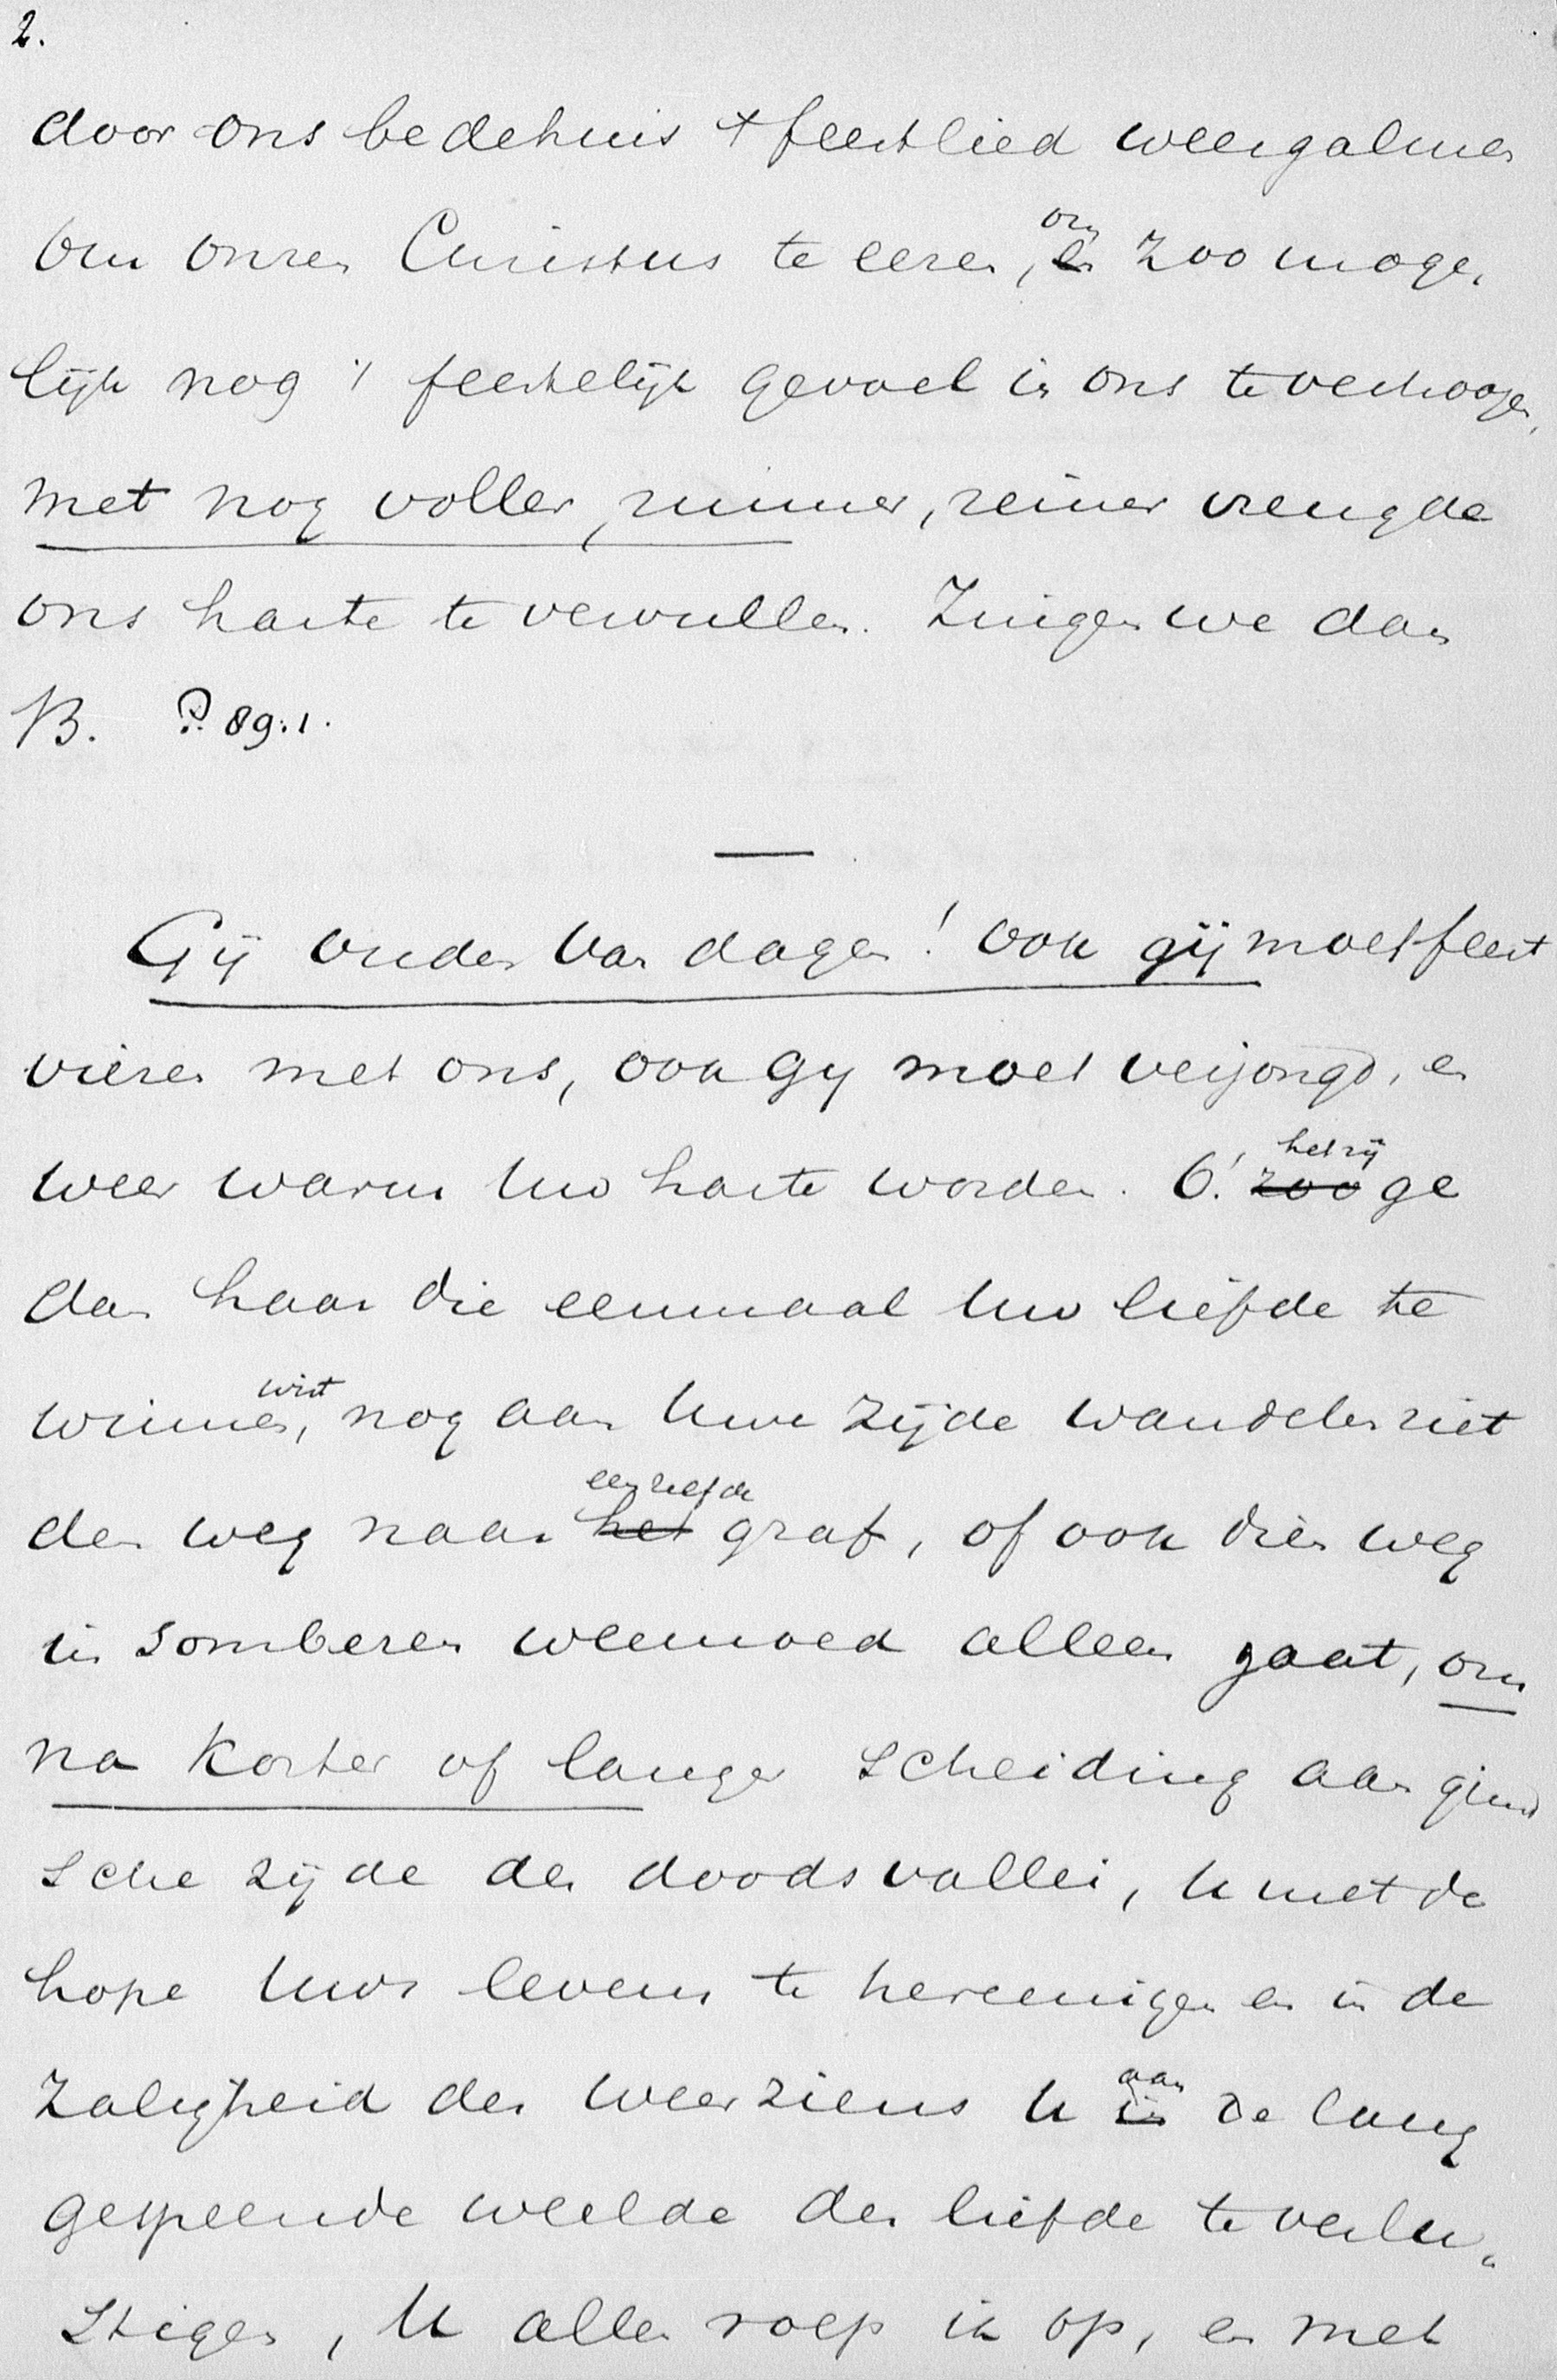 2.
door ons bedehuis 't feestlied weergalmen
om onzen Christus te eeren, om ~~en~~ zoo moge,
lijk nog 't feestelijk gevoel in ons te verhoogen,
met nog voller, ruimer, reiner vreugde
ons harte te vervullen. Zingen we dan
B. Ps. 89:1.
Gij ouden van dagen! ook gij moet feest
vieren met ons, ook gy moet verjongd, en
weer warm uw harte worden. O! hetzij ~~zoo~~ ge
dan haar die eenmaal uw liefde te
winnen wist, nog aan uwe zijde wandelen ziet
den weg naar eenzelfde ~~het~~ graf, of ook dien weg
in somberen weemoed alleen gaat, om
na korter of langer scheiding aan gind
sche zijde der doodsvallei, u met de
hope uws levens te hereenigen en in de
zaligheid des weerziens u aan ~~in~~ de lang
gespeende weelde der liefde te verlu„
stigen, U allen roep ik op, en met